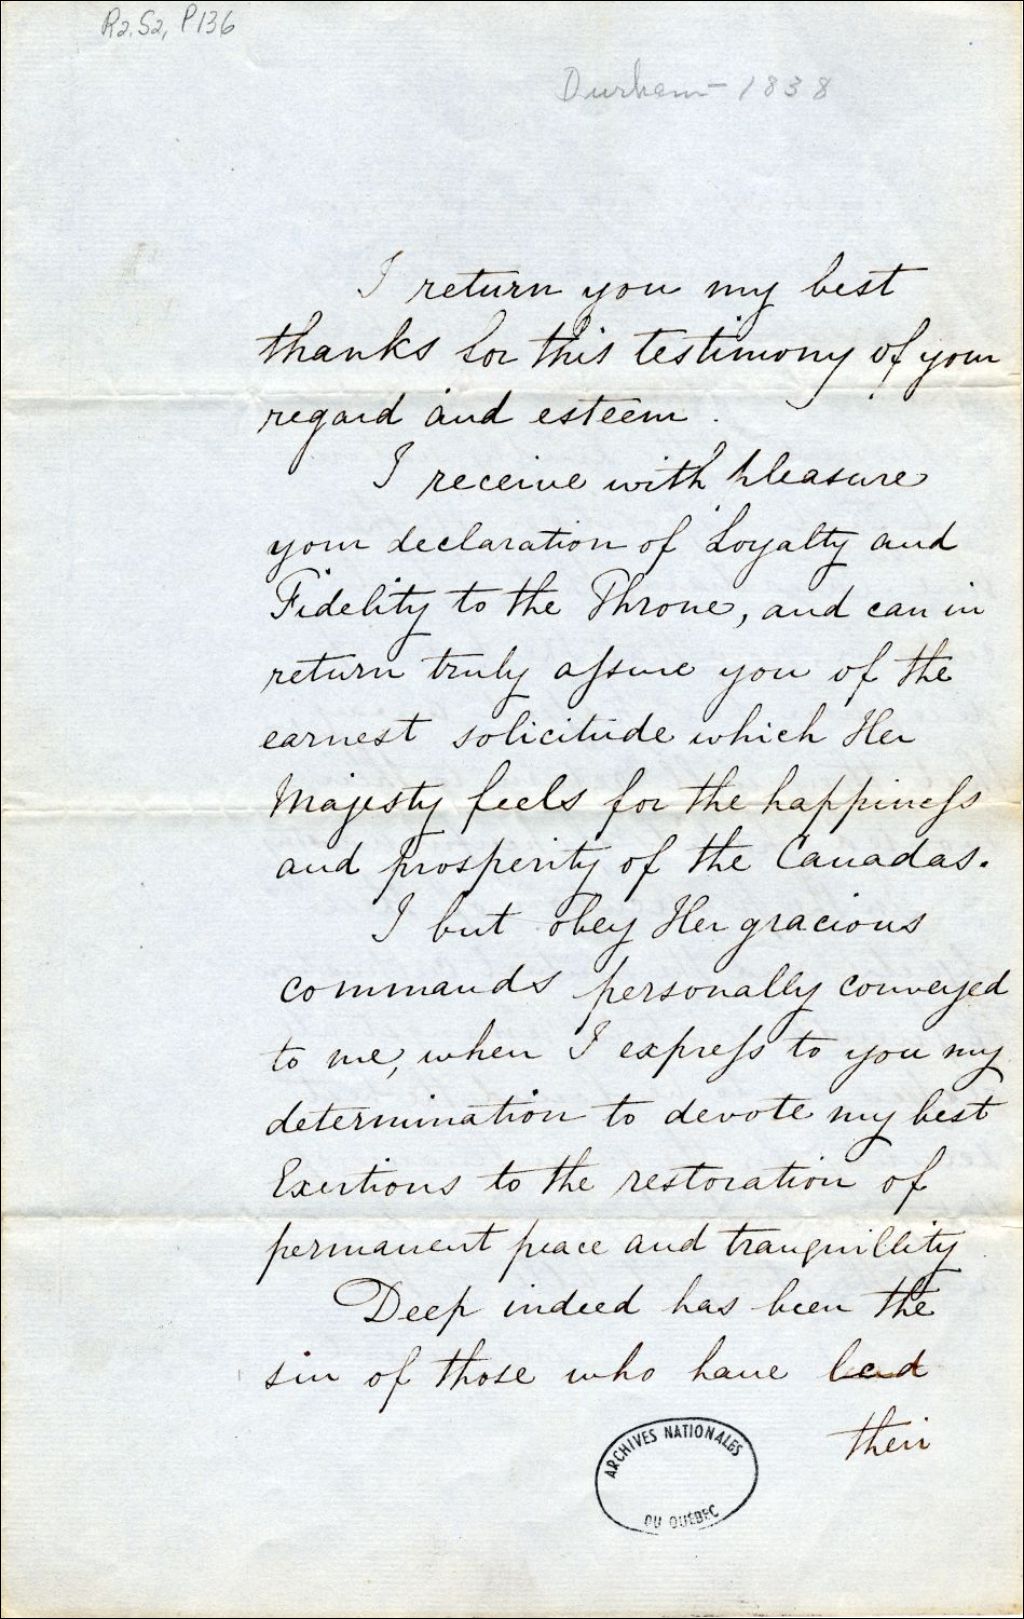 R2.S2, P136
Durham - 1838
I return you my best
thanks for this testimony of your
regard and esteem.
I receive with pleasure
your declaration of Loyalty and
Fidelity to the Throne, and can in
return truly assure you of the
earnest solicitude which Her
Majesty feels for the happiness
and prosperity of the Canadas.
I but obey Her gracious
commands personally conveyed
to me, when I express to you my
determination to devote my best
Exertions to the restoration of
permanent peace and tranquillity
Deep indeed has been the
sin of those who have lead
their
ARCHIVES NATIONALES
DU QUÉBEC